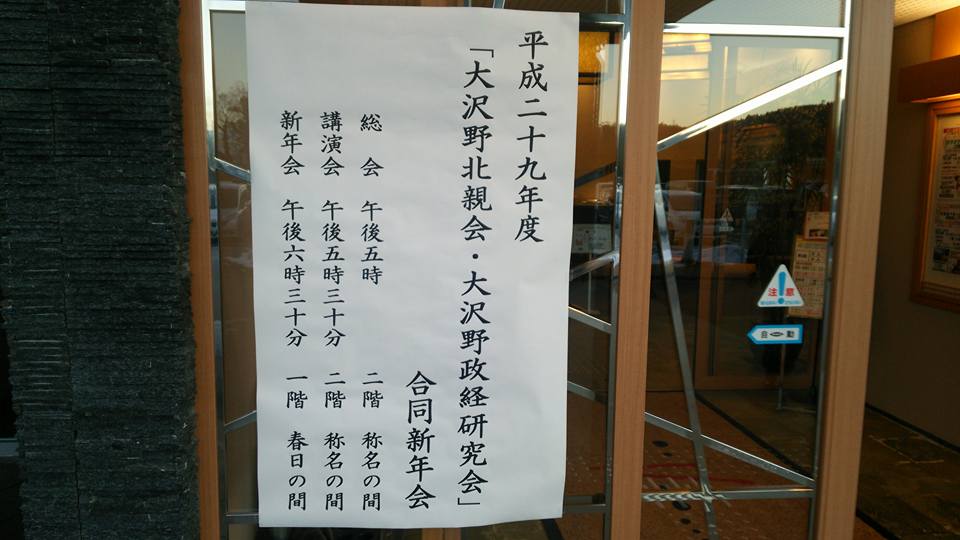 平成二十九年度
「大沢野北親会・大沢野政経研究会」
合同新年会
総　会　午後五時　二階　称名の間
講演会　午後五時三十分　二階　称名の間
新年会　午後六時三十分　一階　春日の間
注意
自動